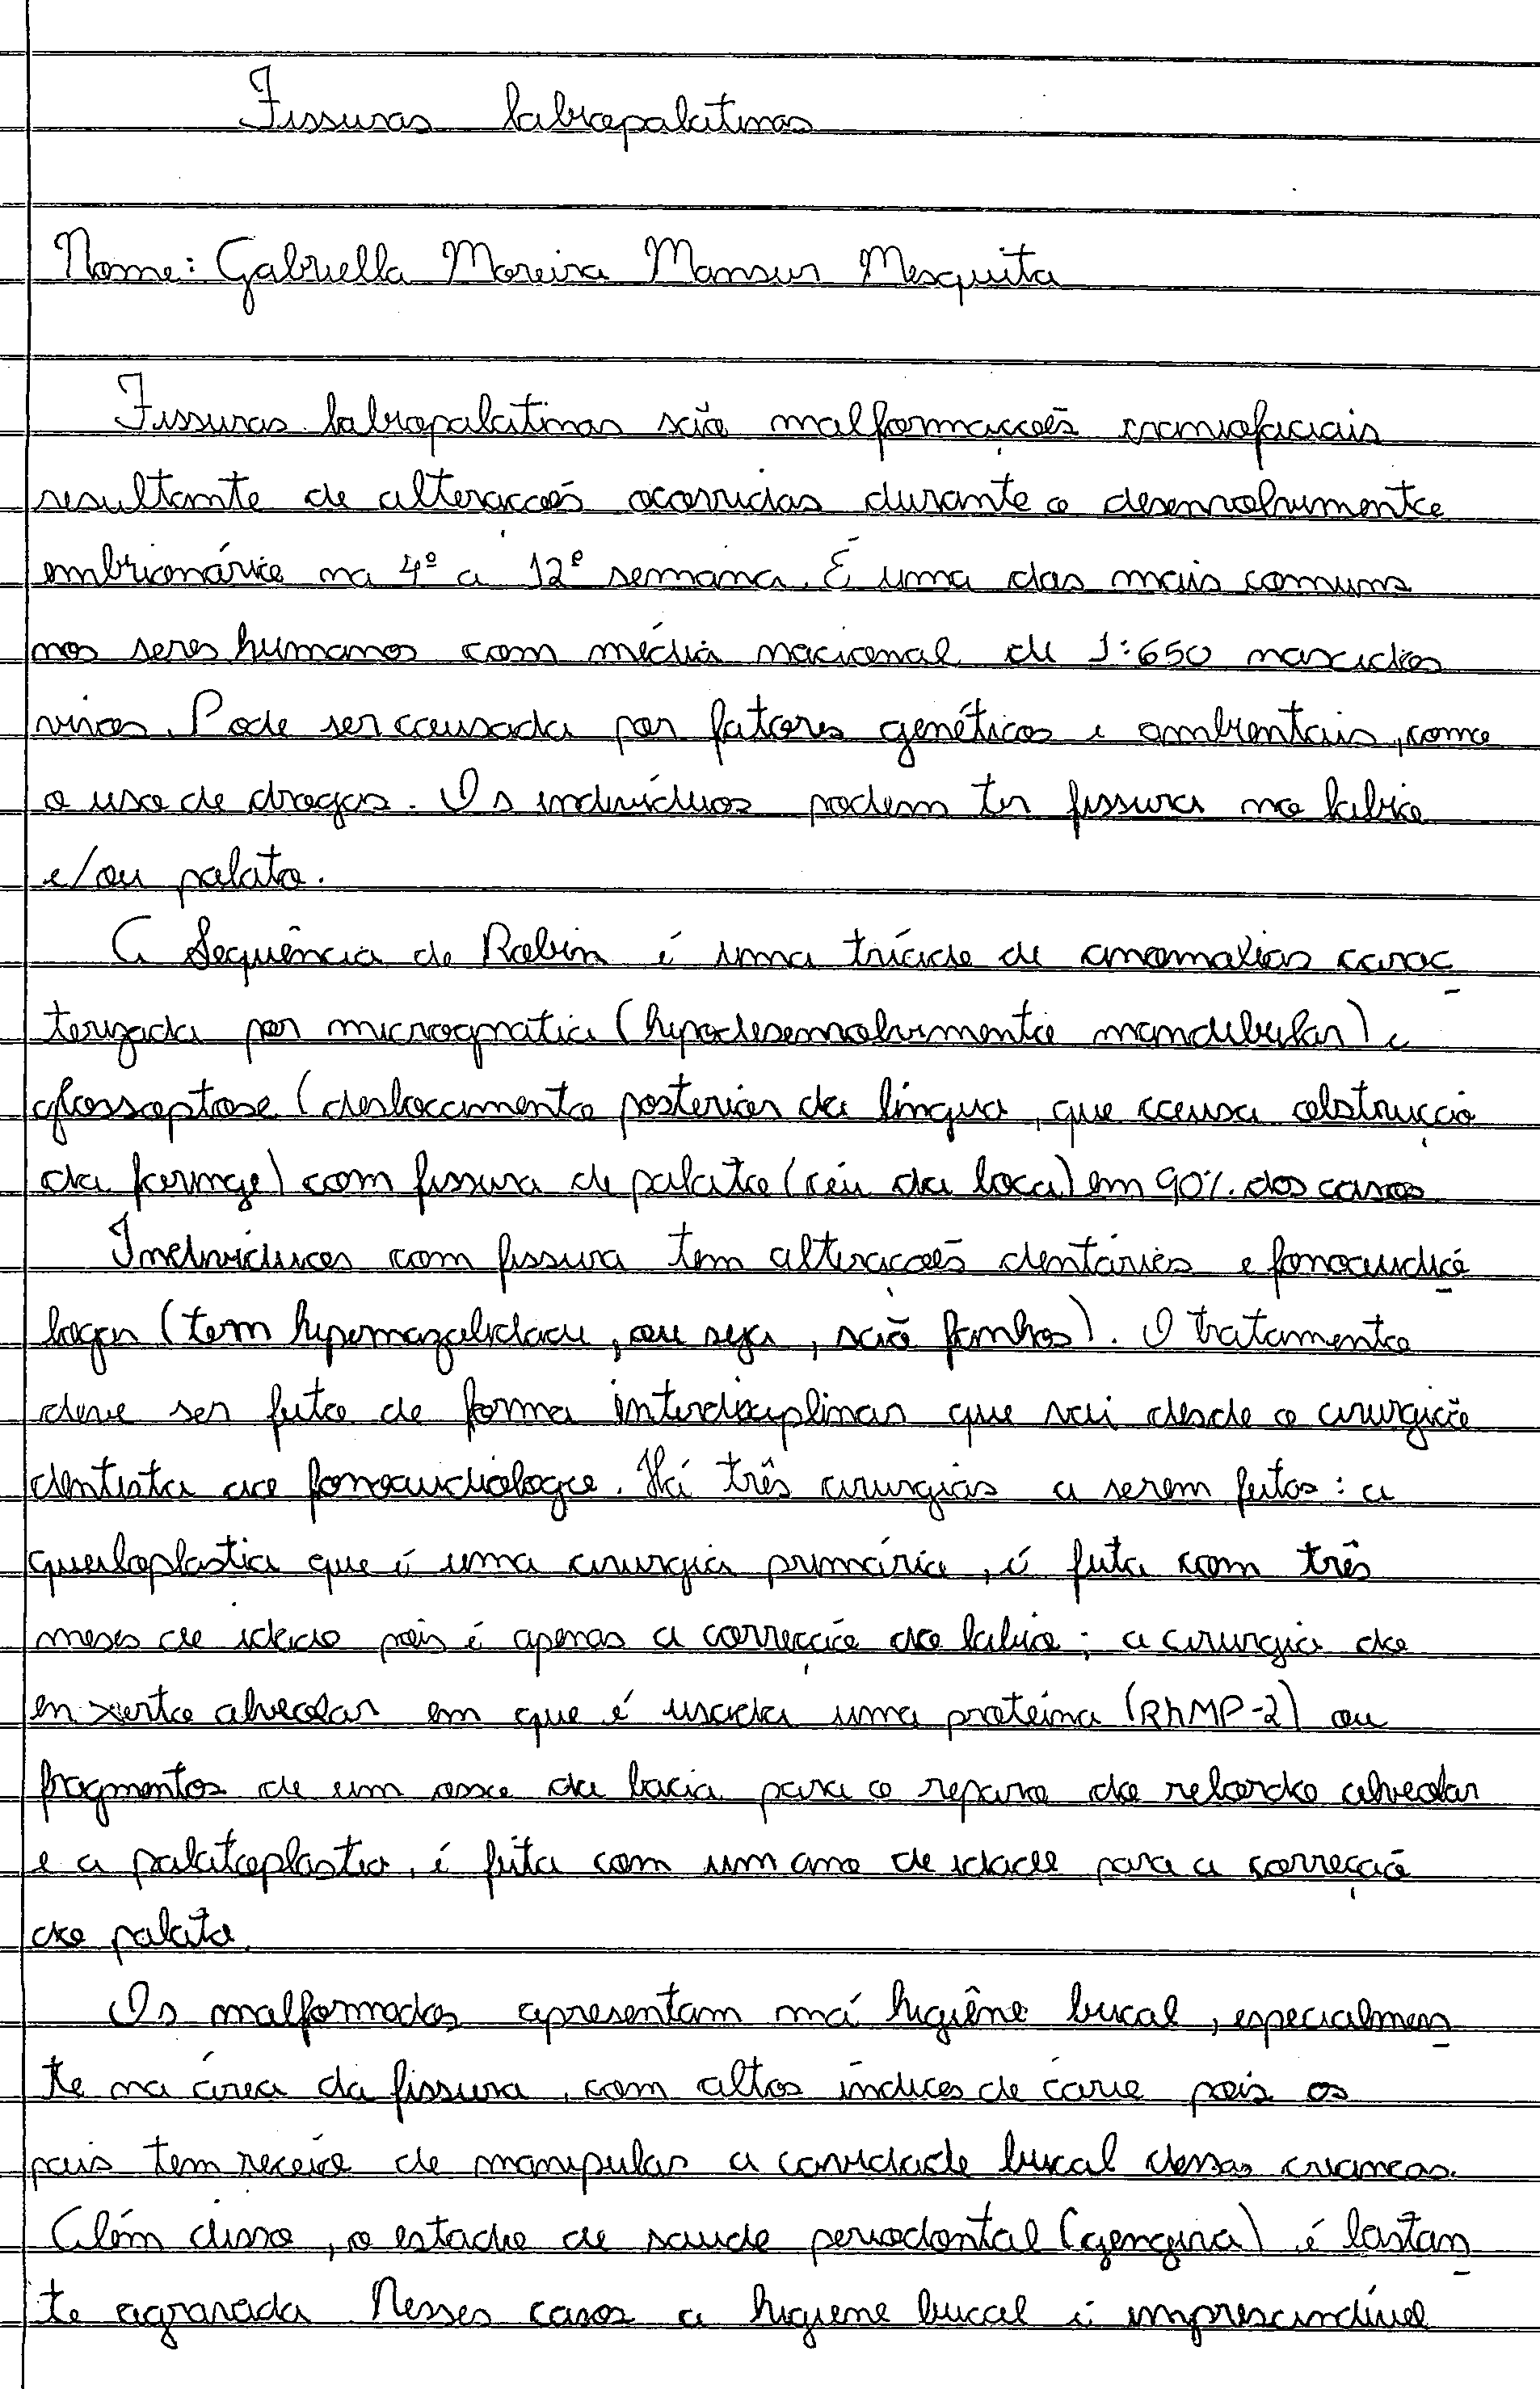 Fissuras labiopalatinas
Nome: Gabriella Moreira Mansur Mesquita
Fissuras labiopalatinas são malformações craniofaciais
resultante de alterações ocorridas durante o desenvolvimento
embrionário na 4º a 12º semana. É uma das mais comuns
nos seres humanos com média nacional de 1:650 nascidos
vivos. Pode ser causada por fatores genéticos e ambientais, como
o uso de drogas. Os indivíduos podem ter fissura no lábio
e/ou palato.
A Sequência de Robin é uma tríade de anomalias carac
terizada por micrognatia (hipodesenvolvimento mandibular) e
glossoptose (deslocamento posterior da língua, que causa obstrução
da faringe) com fissura de palato (céu da boca) em 90% dos casos
Indivíduos com fissura tem alterações dentárias e fonoaudió
logas (tem hipernazalidade, ou seja, são fanhos). O tratamento
deve ser feito de forma interdisciplinar que vai desde o cirurgião
dentista ao fonoaudiólogo. Há três cirurgias a serem feitas: a
queiloplastia que é uma cirurgia primária, é feita com três
meses de idade pois é apenas a correção do lábio; a cirurgia do
enxerto alveolar em que é usada uma proteína (RhMP-2) ou
fragmentos de um osso da bacia para o reparo do rebordo alveolar
e a palatoplastia, é feita com um ano de idade para a correção
do palato.
Os malformados apresentam má higiêne bucal, especialmen
te na área da fissura, com altos índices de cárie pois os
pais tem receio de manipular a cavidade bucal dessas crianças.
Além disso, o estado de saude periodontal (gengiva) é bastan
te agravada Nesses casos a higiene bucal é imprescindível